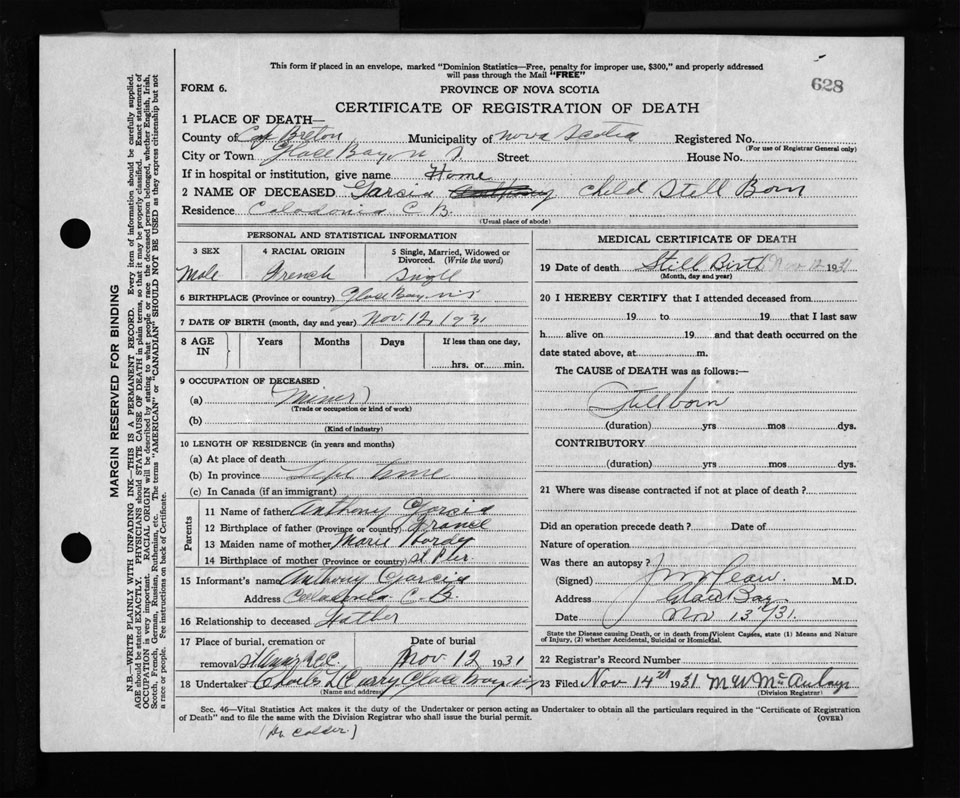 This form if placed in an envelope, marked "Dominion Statistics—Free, penalty for improper use, $300," and properly addressed
will pass through the Mail "FREE"
628
FORM 6.
PROVINCE OF NOVA SCOTIA
CERTIFICATE OF REGISTRATION OF DEATH
1 PLACE OF DEATH—
County of Cape Breton Municipality of Nova Scotia Registered No.
(For use of Registrar General only)
City or Town Glace Bay N. S. Street House No.
If in hospital or institution, give name Home
2 NAME OF DECEASED Garcia Anthony Child Still Born
Residence Caledonia C. B.
(Usual place of abode)
PERSONAL AND STATISTICAL INFORMATION
3 SEX 4 RACIAL ORIGIN 5 Single, Married, Widowed or
Divorced. (Write the word)
Male French Single
6 BIRTHPLACE (Province or country) Glace Bay N.S.
7 DATE OF BIRTH (month, day and year) Nov. 12, 1931
8 AGE IN Years Months Days If less than one day,
hrs. or min.
9 OCCUPATION OF DECEASED
(a) Miner
(Trade or occupation or kind of work)
(b)
(Kind of industry)
10 LENGTH OF RESIDENCE (in years and months)
(a) At place of death
(b) In province Life time
(c) In Canada (if an immigrant)
Parents
11 Name of father Anthony Garcia
12 Birthplace of father (Province or country) France
13 Maiden name of mother Marie
14 Birthplace of mother (Province or country) St Pier
15 Informant's name Anthony Garcia
Address Caledonia C. B.
16 Relationship to deceased Father
17 Place of burial, cremation or Date of burial
removal Nov 12 1931
18 Undertaker Charles L Curry Glace Bay N.S.
(Name and address)
MEDICAL CERTIFICATE OF DEATH
19 Date of death Still Birth Nov 12 1931
(Month, day and year)
20 I HEREBY CERTIFY that I attended deceased from
19 to 19 that I last saw
h alive on 19 and that death occurred on the
date stated above, at m.
The CAUSE of DEATH was as follows:
Stillborn
(duration) yrs mos dys.
CONTRIBUTORY
(duration) yrs mos dys.
21 Where was disease contracted if not at place of death?
Did an operation precede death? Date of
Nature of operation
Was there an autopsy?
(Signed) M.D.
Address Glace Bay
Date Nov 13th/31
State the Disease causing Death, or in death from Violent Causes, state (1) Means and Nature
of Injury, (2) whether Accidental, Suicidal or Homicidal.
22 Registrar's Record Number
23 Filed Nov 14th 1931 M W McAulay
(Division Registrar)
Sec. 46—Vital Statistics Act makes it the duty of the Undertaker or person acting as Undertaker to obtain all the particulars required in the "Certificate of Registration
of Death" and to file the same with the Division Registrar who shall issue the burial permit. (OVER)
(Dr Calder)
MARGIN RESERVED FOR BINDING
N.B.—WRITE PLAINLY WITH UNFADING INK—THIS IS A PERMANENT RECORD. Every item of information should be carefully supplied.
AGE should be stated EXACTLY. PHYSICIANS should STATE CAUSE OF DEATH in plain terms, so that it may be properly classified. Exact statement of
OCCUPATION is very important. RACIAL ORIGIN will be described by stating to what people or race the deceased person belonged, whether English, Irish,
Scotch, French, German, Russian, Ruthenian, etc. The terms "AMERICAN" or "CANADIAN" SHOULD NOT BE USED as they express citizenship but not
a race or people. See instructions on back of Certificate.